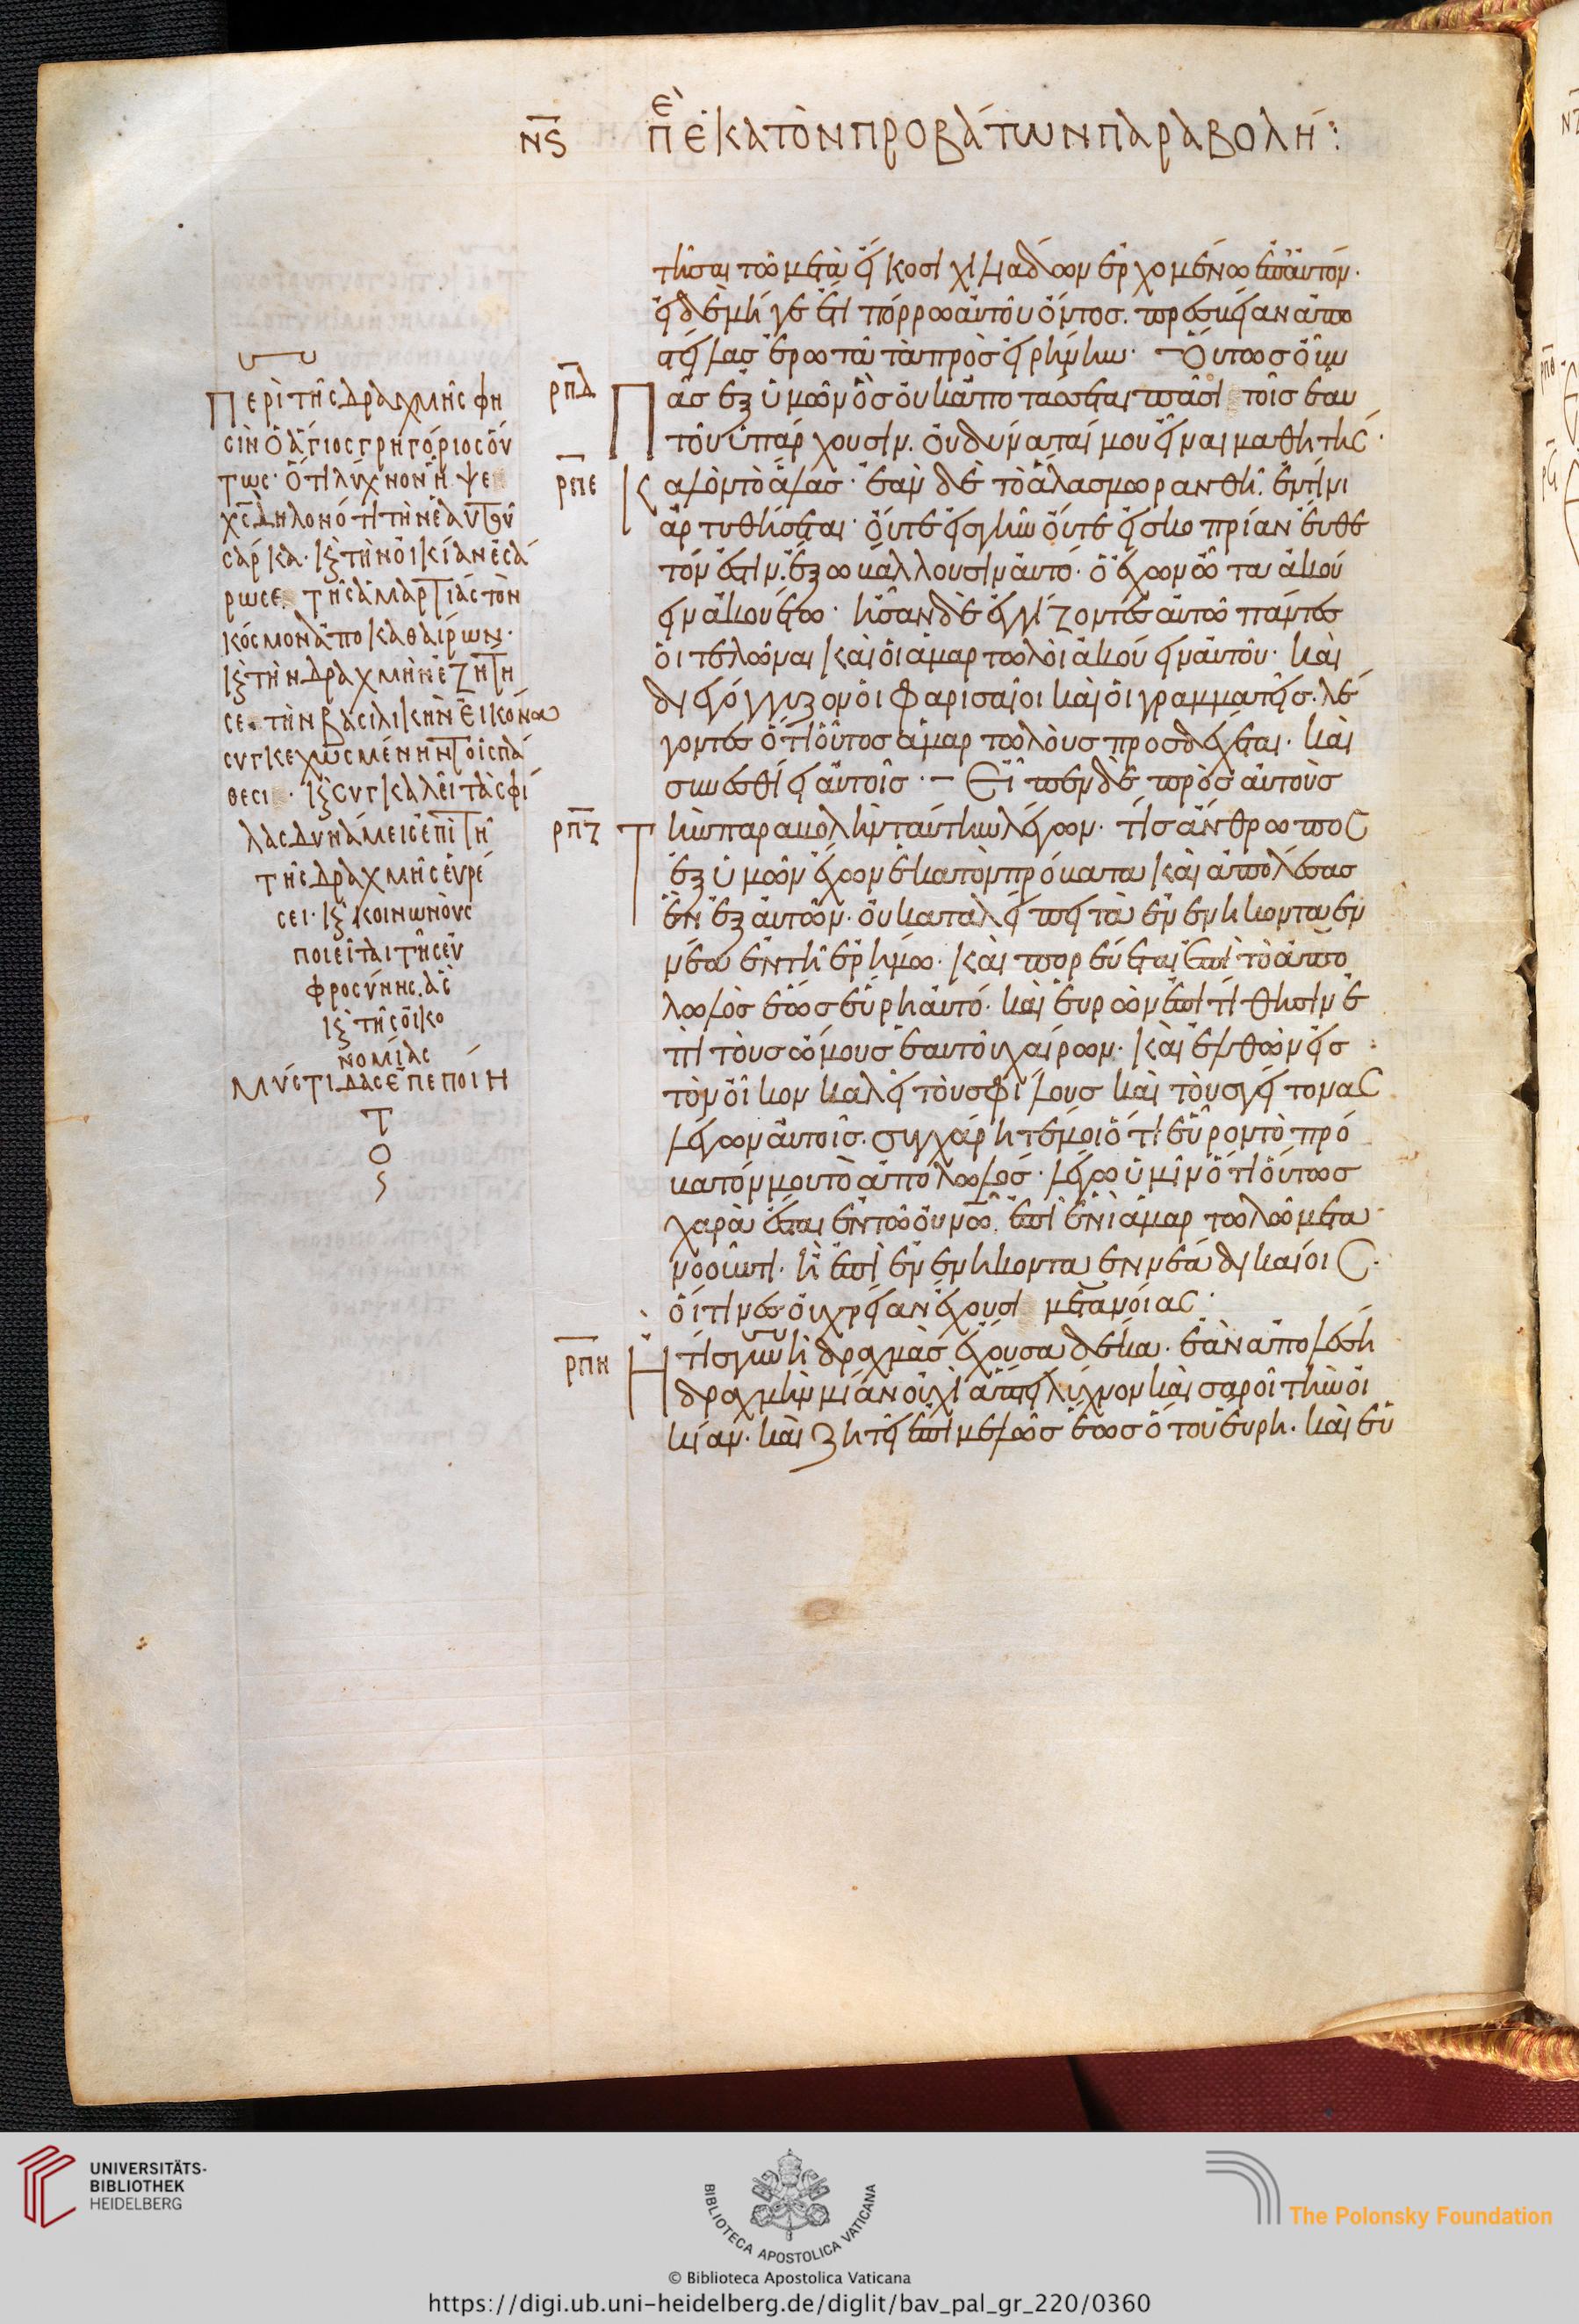 νϛ περὶ ἑκατὸν προβάτων παραβολή:
τῆσαι τῶ μετὰ εἴκοσι χιλιάδων ἐρχομένω ἐπ' αὐτόν·
εἰ δὲ μήγε ἔτι πόρρω αὐτοῦ ὄντος. πρεσβείαν ἀπο
στείλας ἐρωτᾶ τὰ πρὸς εἰρήνην· Οὕτως οὖν
ρπδ Πᾶς ἐξ ὑμῶν ὃς οὐκ ἀποτάσσεται πᾶσι τοῖς ἑαυ
τοῦ ὑπάρχουσιν. οὐ δύναταί μου εἶναι μαθητής·
ρπε Καλὸν τὸ ἅλας· ἐὰν δὲ τὸ ἅλας μωρανθῆ. ἐν τίνι
ἀρτυθήσεται· οὔτε εἰς γῆν οὔτε εἰς κοπρίαν εὔθε
τόν ἐστιν. ἔξω βάλλουσιν αὐτό· ὁ ἔχων ὦτα ἀκού
ειν ἀκουέτω· ἦσαν δὲ ἐγγίζοντες αὐτῶ πάντες
οἱ τελῶναι καὶ οἱ ἁμαρτωλοὶ ἀκούειν αὐτοῦ· καὶ
διεγόγγυζον οἱ φαρισαῖοι καὶ οἱ γραμματεῖς. λέ
γοντες ὅτι οὗτος ἁμαρτωλοὺς προσδέχεται· καὶ
συνεσθίει αὐτοῖς· – Εἶπεν δὲ πρὸς αὐτοὺς
ρπζ Τὴν παραβολὴν ταύτην λέγων· τίς ἄνθρωπος
ἐξ ὑμῶν ἔχων ἑκατὸν πρόβατα καὶ ἀπολέσας
ἓν ἐξ αὐτῶν. οὐ καταλείπει τὰ ἐνενηκονταεν
νέα ἐν τῆ ἐρήμω· καὶ πορεύεται ἐπὶ τὸ ἀπο
λωλὸς ἕως εὕρη αὐτό· καὶ εὑρὼν ἐπιτίθησιν ἐ
πὶ τοὺς ὤμους ἑαυτοῦ χαίρων· καὶ ἐλθὼν εἰς
τὸν οἶκον καλεῖ τοὺς φίλους καὶ τοὺς γείτονας
λέγων αὐτοῖς. συγχάρητέ μοι ὅτι εὗρον τὸ πρό
βατόν μου τὸ ἀπολωλός· λέγω ὑμῖν ὅτι οὕτως
χαρὰ ἔσται ἐν τῶ οὐνῶ. ἐπὶ ἑνὶ ἁμαρτωλῶ μετα
νοοῦντι· ἢ ἐπὶ ἐνενηκονταεννέα δικαίοις·
οἵτινες οὐ χρείαν ἔχουσι μετανοίας·
ρπη Ἢ τίς γυνὴ δραχμὰς ἔχουσα δέκα· ἐὰν ἀπολέση
δραχμὴν μίαν οὐχὶ ἅπτει λύχνον καὶ σαροῖ τὴν οἰ
κίαν· καὶ ζητεῖ ἐπιμελῶς ἕως ὅτου εὕρη· καὶ εὑ
Περὶ τῆς δραχμῆς φη
σὶν ὁ ἅγιος γρηγόριος οὕ
τως· ὅτι λύχνον ἧψε
χς δηλονότι τὴν ἑαυτοῦ
σάρκα· κ τὴν οἰκίαν ἐσά
ρωσε τῆς ἁμαρτίας τὸν
κόσμον ἀποκαθαίρων·
κ τὴν δραχμὴν ἐζήτη
σε τὴν βασιλικὴν εἰκόνα
συγκεχωσμένην τοῖς πά
θεσι· κ συγκαλεῖ τὰς φί
λας δυνάμεις ἐπὶ τῆ
τῆς δραχμῆς εὑρέ
σει· κ κοινωνοὺς
ποιεῖται τῆς εὐ
φροσύνης. ἃς
κ τῆς οἰκο
νομίας
μύστιδας ἐπεποιή
τ
ο
ς
UNIVERSITÄTS-
BIBLIOTHEK
HEIDELBERG
BIBLIOTECA APOSTOLICA VATICANA
The Polonsky Foundation
© Biblioteca Apostolica Vaticana
https://digi.ub.uni-heidelberg.de/diglit/bav_pal_gr_220/0360